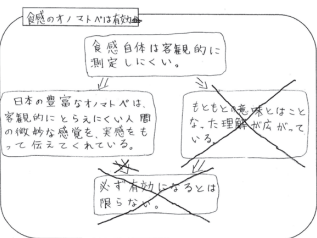 食感のオノマトペは有効
食感自体は客観的に
測定しにくい。
日本の豊富なオノマトペは、
客観的にとらえにくい人間
の微妙な感覚を、実感をも
って伝えてくれている。
もともとの意味とはこと
なった理解が広がって
いる。
必ず有効になるとは
限らない。